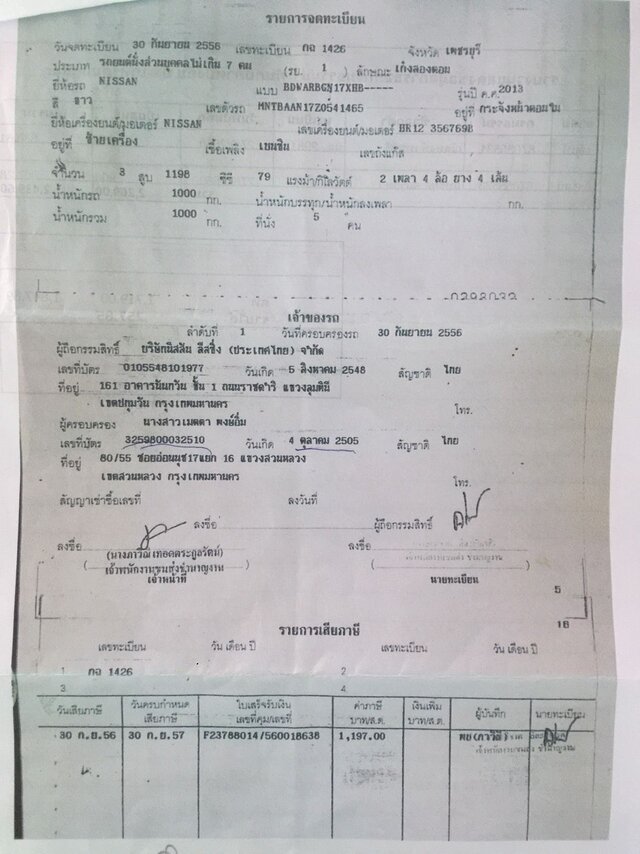 รายการจดทะเบียน
วันจดทะเบียน 30 กันยายน 2556 เลขทะเบียน กฉ 1426 จังหวัด เพชรบุรี
ประเภท รถยนต์นั่งส่วนบุคคลไม่เกิน 7 คน (รย. 1 ) ลักษณะ เก๋งสองตอน
ยี่ห้อรถ NISSAN แบบ BDWARBGN17XHB----- รุ่นปี ค.ศ.2013
สี ขาว เลขตัวรถ MNTBAAN17Z0541465 อยู่ที่ กระจังหน้าตอนใน
ยี่ห้อเครื่องยนต์/มอเตอร์ NISSAN เลขเครื่องยนต์/มอเตอร์ HR12 356769B
อยู่ที่ ซ้ายเครื่อง เชื้อเพลิง เบนซิน เลขถังแก๊ส
จำนวน 3 สูบ 1198 ซีซี 79 แรงม้า/กิโลวัตต์ 2 เพลา 4 ล้อ ยาง 4 เส้น
น้ำหนักรถ 1000 กก. น้ำหนักบรรทุก/น้ำหนักลงเพลา กก.
น้ำหนักรวม 1000 กก. ที่นั่ง 5 คน
เจ้าของรถ
ลำดับที่ 1 วันที่ครอบครองรถ 30 กันยายน 2556
ผู้ถือกรรมสิทธิ์ บริษัทนิสสัน ลีสซิ่ง (ประเทศไทย) จำกัด
เลขที่บัตร 0105548101977 วันเกิด 5 สิงหาคม 2548 สัญชาติ ไทย
ที่อยู่ 161 อาคารนันทวัน ชั้น 1 ถนนราชดำริ แขวงลุมพินี
เขตปทุมวัน กรุงเทพมหานคร โทร.
ผู้ครอบครอง นางสาวเมตตา พงษ์อิ่ม
เลขที่บัตร 3259800032510 วันเกิด 4 ตุลาคม 2505 สัญชาติ ไทย
ที่อยู่ 80/55 ซอยอ่อนนุช17แยก 16 แขวงสวนหลวง
เขตสวนหลวง กรุงเทพมหานคร โทร.
สัญญาเช่าซื้อเลขที่ ลงวันที่
ลงชื่อ ผู้ถือกรรมสิทธิ์
ลงชื่อ ลงชื่อ
เจ้าพนักงานขนส่งชำนาญงาน
เจ้าหน้าที่ นายทะเบียน
5
18
รายการเสียภาษี
เลขทะเบียน วัน เดือน ปี เลขทะเบียน วัน เดือน ปี
1 กฉ 1426 2
3 4
วันเสียภาษี วันครบกำหนดเสียภาษี ใบเสร็จรับเงิน เลขที่คุม/เลขที่ ค่าภาษี บาท/ส.ต. เงินเพิ่ม บาท/ส.ต. ผู้บันทึก นายทะเบียน
30 ก.ย.56 30 ก.ย.57 F23788014/560018638 1,197.00